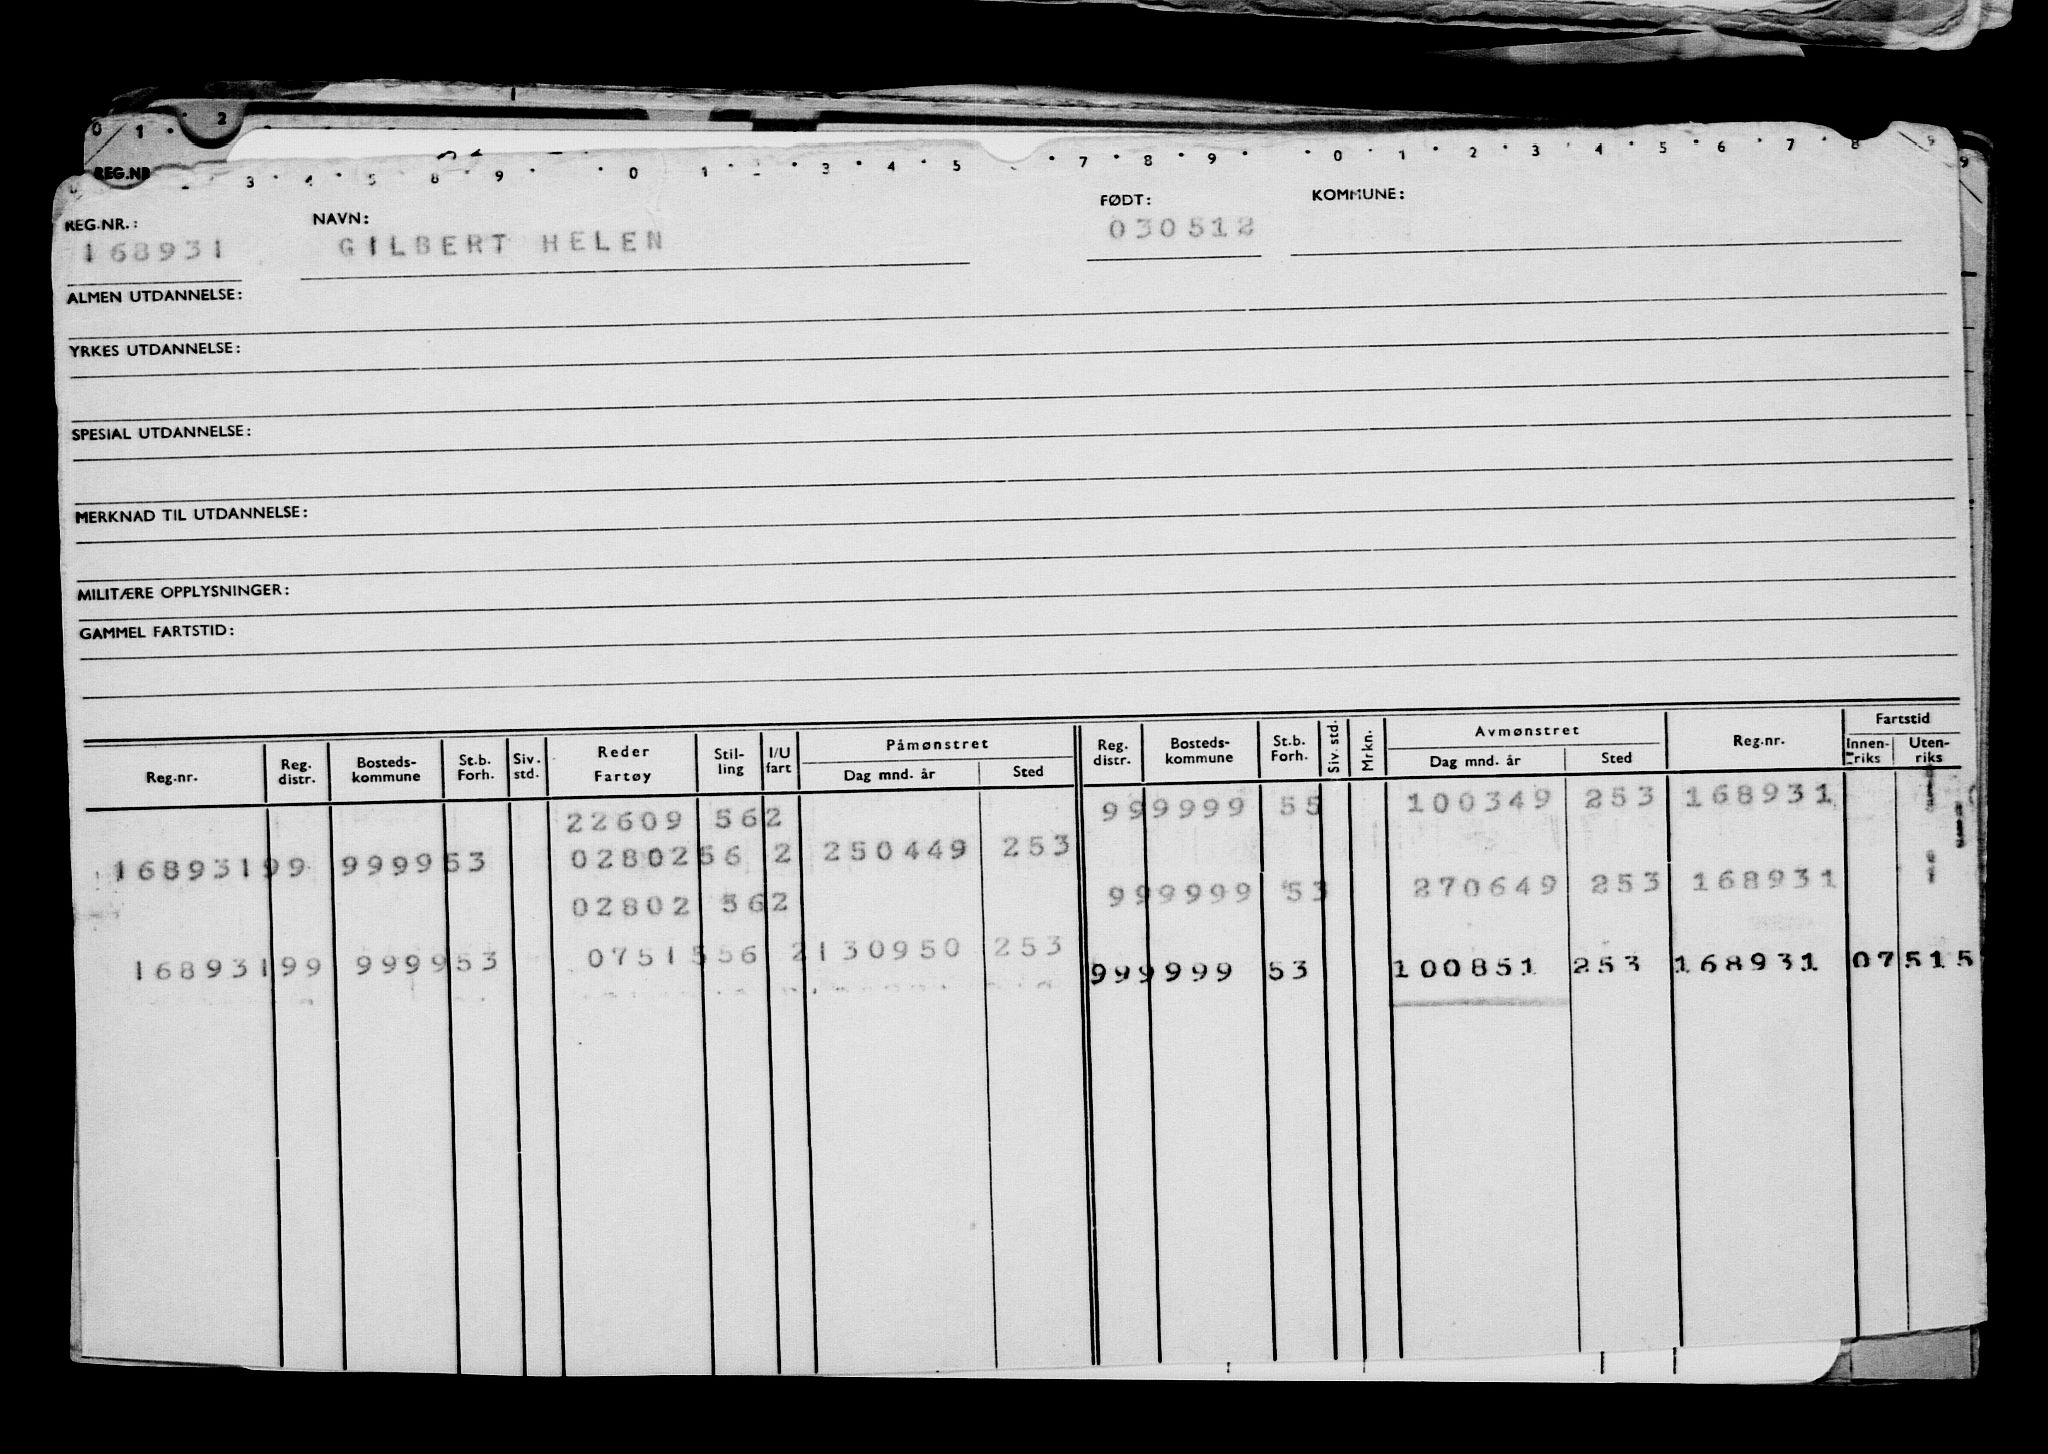 0 1 2
REG.NR
3 4 5 8 9 0 1 2 3 4 5 7 8 9 0 1 2 3 4 5 6 7 8 9
REG.NR.: NAVN: FØDT: KOMMUNE:
168931 GILBERT HELEN 030512
ALMEN UTDANNELSE:
YRKES UTDANNELSE:
SPESIAL UTDANNELSE:
MERKNAD TIL UTDANNELSE:
MILITÆRE OPPLYSNINGER:
GAMMEL FARTSTID:
Reg.nr. Reg. distr. Bosteds-kommune St.b. Forh. Siv. std. Reder Fartøy Stil-ling I/U fart Påmønstret Dag mnd. år Sted Reg. distr. Bosteds-kommune St.b. Forh. Siv. std. Mrkn. Avmønstret Dag mnd. år Sted Reg.nr. Fartstid Innen-riks Uten-riks
22609 562 999999 55 100349 253 168931
168931 99 9999 53 02802 56 2 250449 253
02802 562 999999 53 270649 253 168931
168931 99 9999 53 07515 56 2 130950 253
999999 53 100851 253 168931 07515